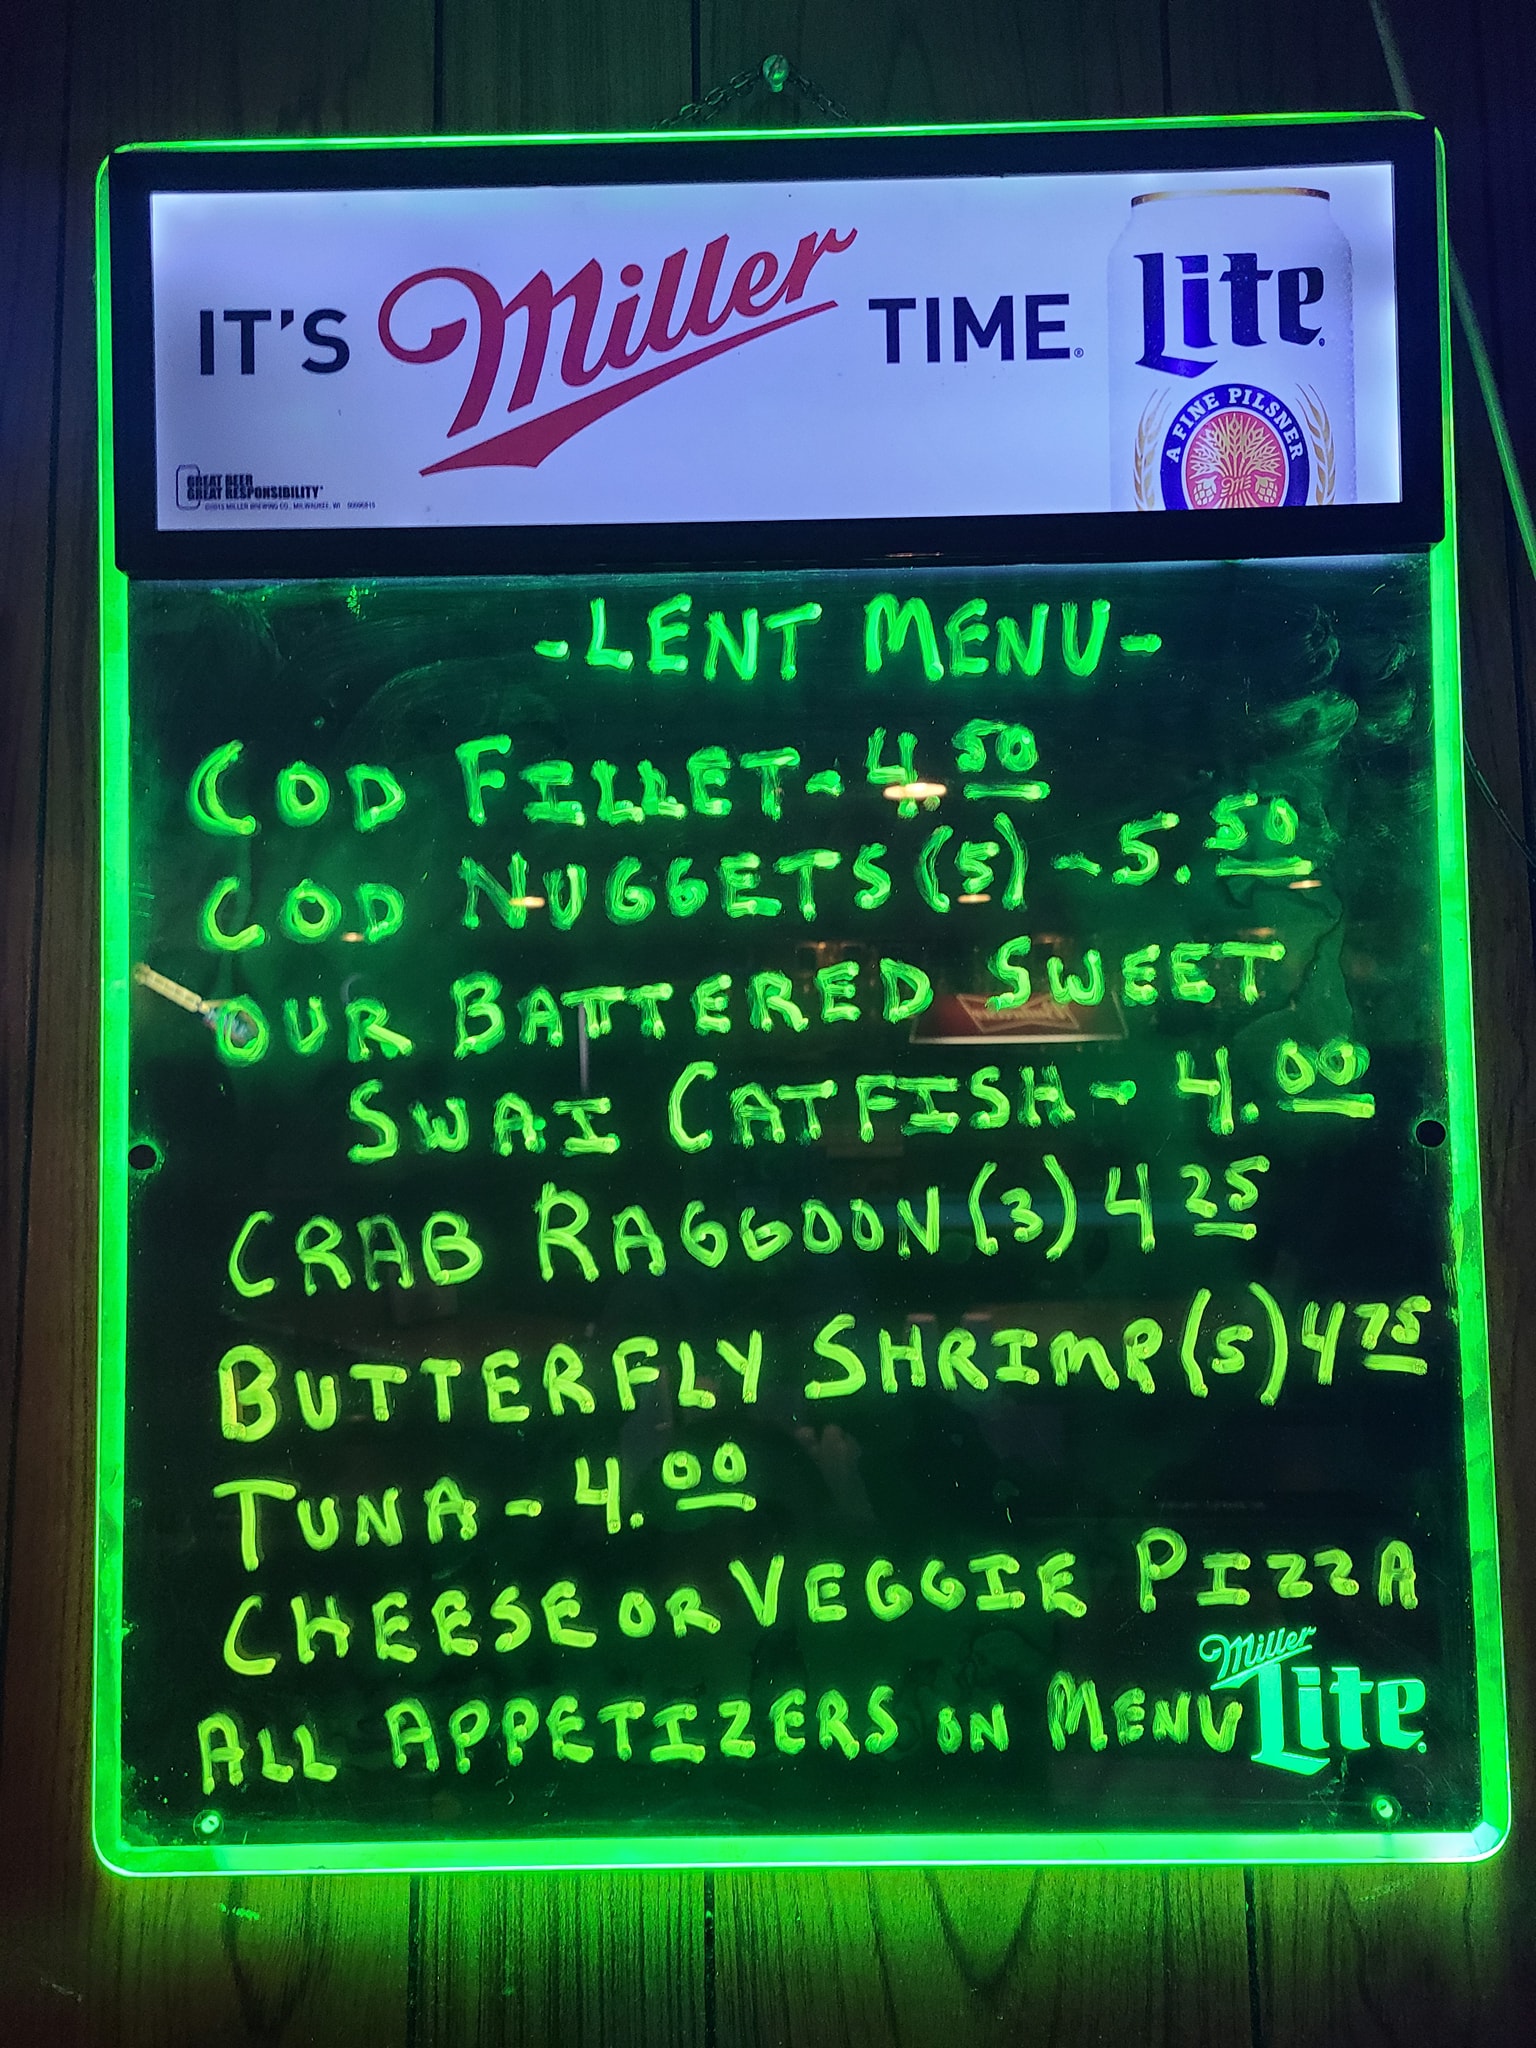 IT'S Miller TIME®
Lite
A FINE PILSNER
GREAT BEER
GREAT RESPONSIBILITY®
©2015 MILLER BREWING CO., MILWAUKEE, WI
-LENT MENU-
COD FILLET- 4.50
COD NUGGETS (5) -5.50
OUR BATTERED SWEET
SWAI CATFISH- 4.00
CRAB RAGGOON (3) 4 25
BUTTERFLY SHRIMP (5) 4 75
TUNA - 4.00
CHEESE OR VEGGIE PIZZA
ALL APPETIZERS ON MENU
Miller
Lite